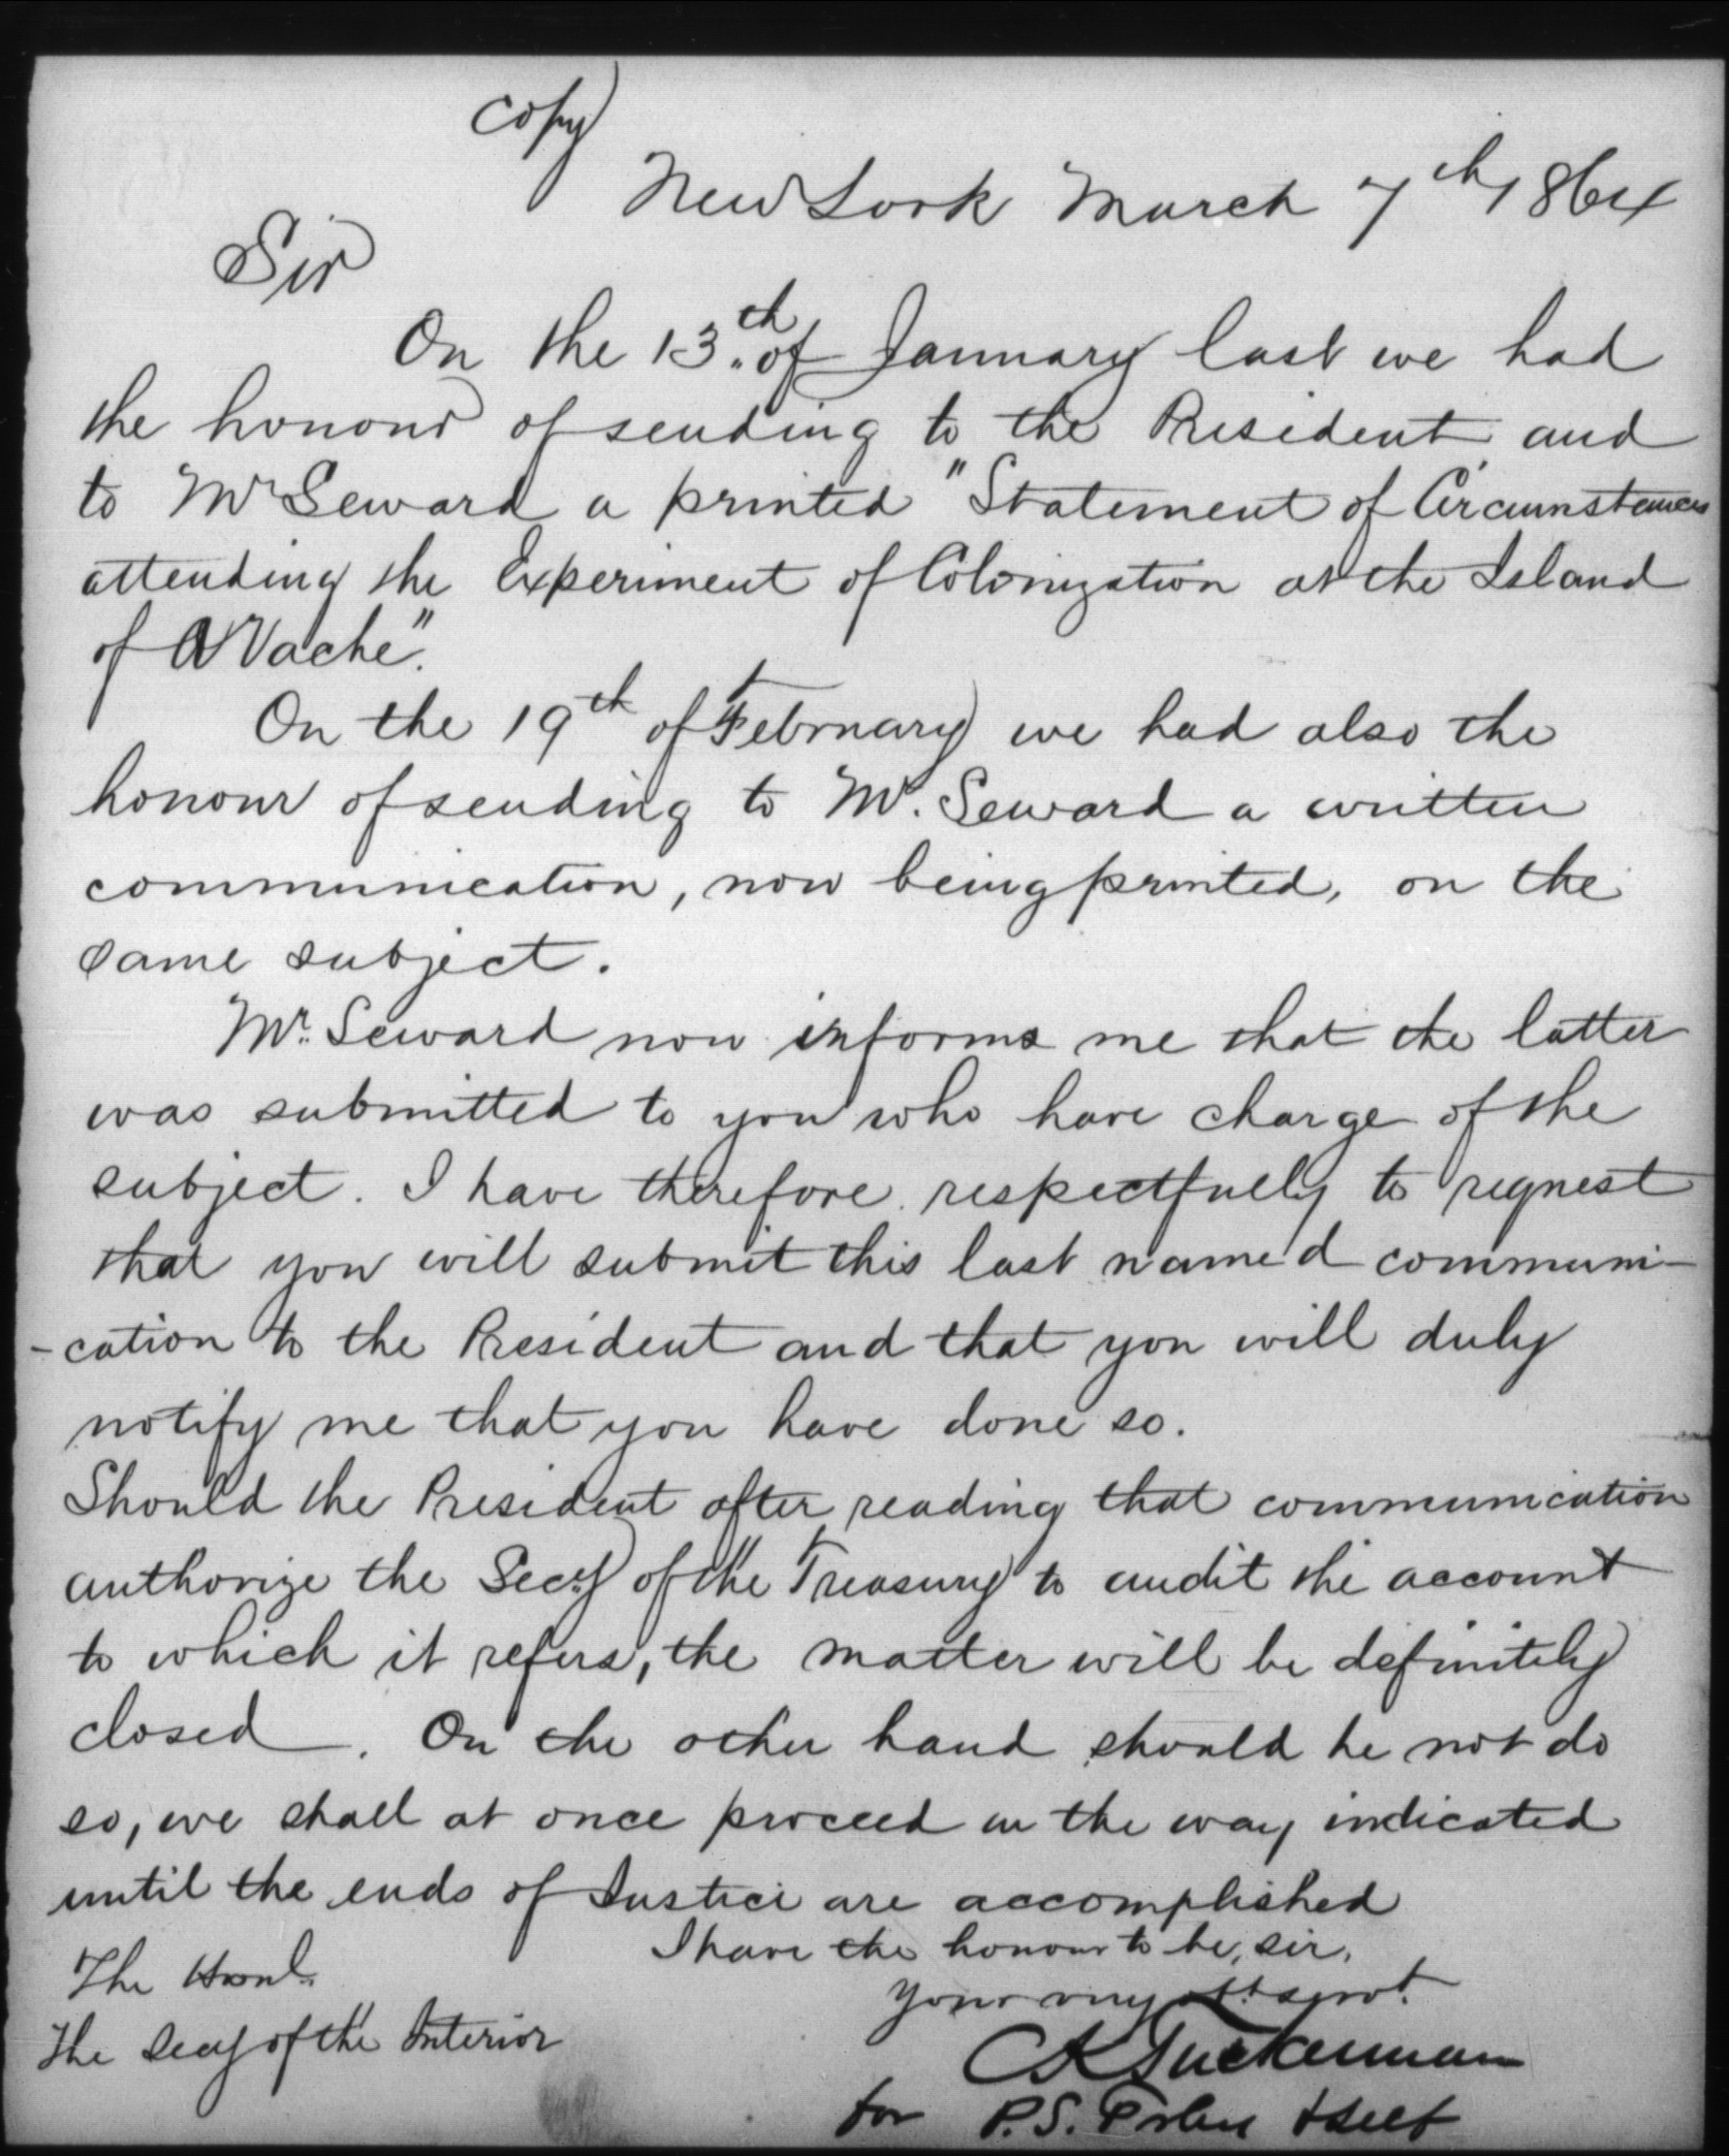 Copy
New York March 7th 1864
Sir
On the 13th of January last we had
the honour of sending to the President and
to Mr Seward a printed "Statement of Circumstances
attending the Experiment of Colonization at the Island
of A Vache".
On the 19th of February we had also the
honour of sending to Mr. Seward a written
communication, now being printed, on the
same subject.
Mr. Seward now informs me that the latter
was submitted to you who have charge of the
subject. I have therefore respectfully to request
that you will submit this last named communi-
-cation to the President and that you will duly
notify me that you have done so.
Should the President after reading that communication
authorize the Secy of the Treasury to audit the account
to which it refers, the matter will be definitely
closed. On the other hand should he not do
so, we shall at once proceed in the way indicated
until the ends of Justice are accomplished
I have the honour to be, sir,
Your very obt. servt.
The Honl.
The Secy of the Interior
CK Tuckerman
for P.S. Forbes & self